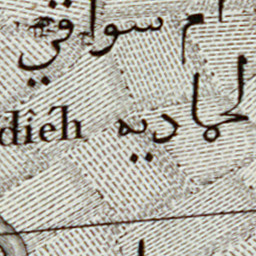 ام سواقي
diéh الحمادية